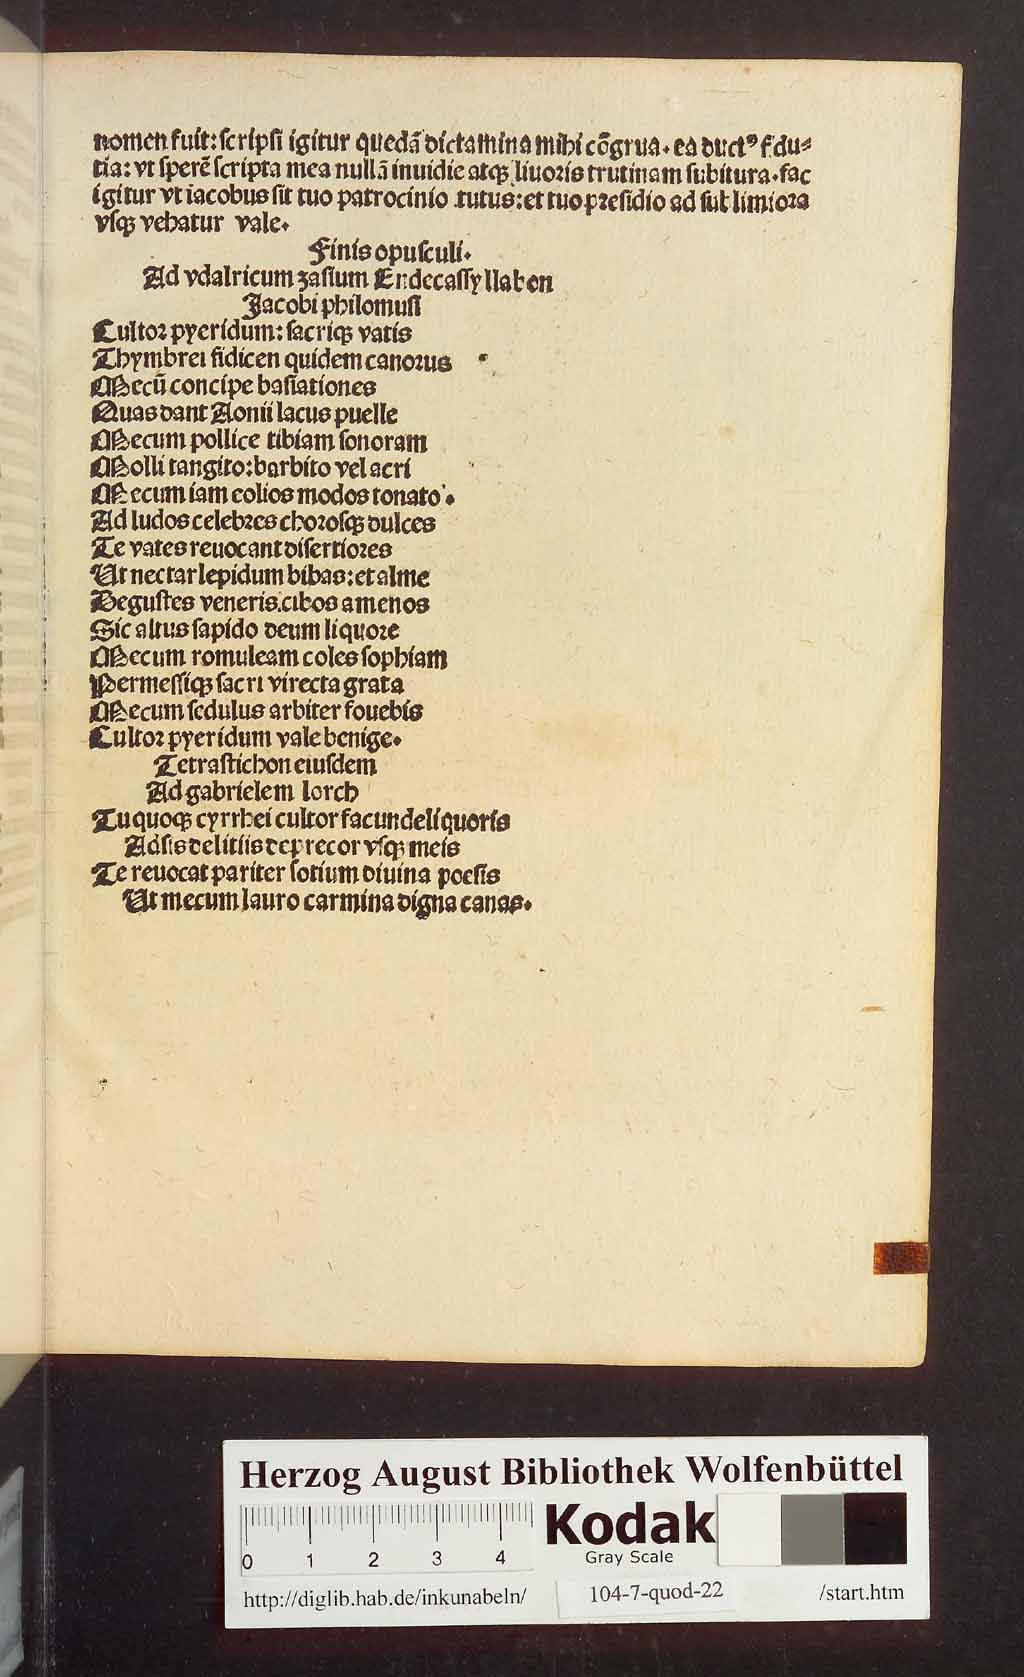 nomen fuit: ſcripſi igitur quedā dictamina mihi cōgrua. ea ductꝰ fidu⸗
tia: vt sperē ſcripta mea nullā inuidie atqꝫ liuoris trutinam ſubitura. fac
igitur vt iacobus ſit tuo patrocinio tutus: et tuo preſidio ad ſublimiora
vſqꝫ vehatur vale.
Finis opuſculi.
Ad vdalricum zaſium Endecaſſyllabon
Jacobi philomuſi
Cultor pyeridum: ſacriqꝫ vatis
Thymbrei fidicen quidem canorus
Mecū concipe baſiationes
Quas dant Aonii lacus puelle
Mecum pollice tibiam ſonoram
Molli tangito: barbito vel acri
Mecum iam eolios modos tonato.
Ad ludos celebres choroſqꝫ dulces
Te vates reuocant diſertiores
Ut nectar lepidum bibas: et alme
Deguſtes veneris cibos amenos
Sic altus ſapido deum liquore
Mecum romuleam coles ſophiam
Permeſſiqꝫ ſacri virecta grata
Mecum ſedulus arbiter fouebis
Cultor pyeridum vale benige.
Tetraſtichon eiuſdem
Ad gabrielem lorch
Tu quoqꝫ cyrrhei cultor facunde liquoris
Adſis delitiis deprecor vſqꝫ meis
Te reuocat pariter ſotium diuina poeſis
Ut mecum lauro carmina digna canas.
Herzog August Bibliothek Wolfenbüttel
0 1 2 3 4
Kodak
Gray Scale
http://diglib.hab.de/inkunabeln/ 104-7-quod-22 /start.htm